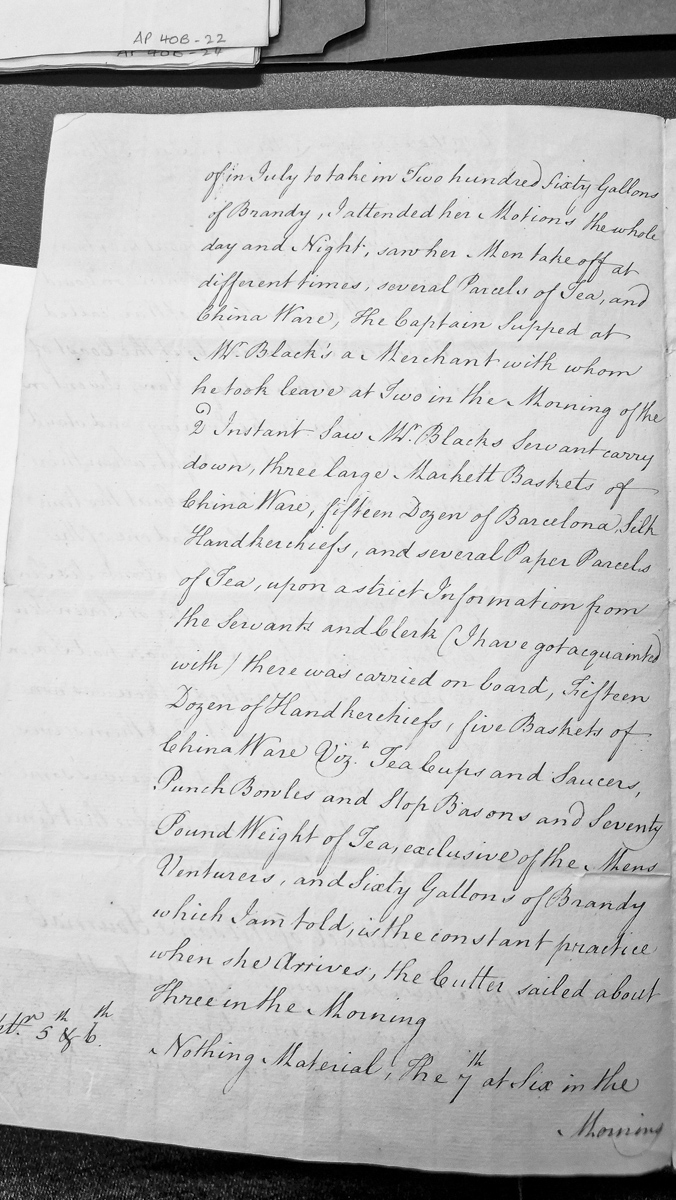 AP 40B-22
AP 40B-24
of in July to take in Two hundred Sixty Gallons
of Brandy, I attended her Motions the whole
day and Night, saw her Men take off at
different times, several Parcels of Tea, and
China Ware, The Captain Supped at
Mr. Black's a Merchant with whom
he took leave at Two in the Morning of the
2d Instant Saw Mr. Blacks Servant carry
down, three large Markett Baskets of
China Ware, fifteen Dozen of Barcelona Silk
Handkerchiefs, and several Paper Parcels
of Tea, upon a strict Information from
the Servants and Clerk (I have got acquainted
with) there was carried on board, Fifteen
Dozen of Handkerchiefs, five Baskets of
China Ware Vizt. Tea Cups and Saucers,
Punch Bowles and Slop Basons and Seventy
Pound Weight of Tea, exclusive of the Mens
Venturers, and Sixty Gallons of Brandy
which I am told, is the constant practice
when she Arrives, the Cutter sailed about
three in the Morning
5th & 6th. Nothing Material, The 7th at Six in the
Morning